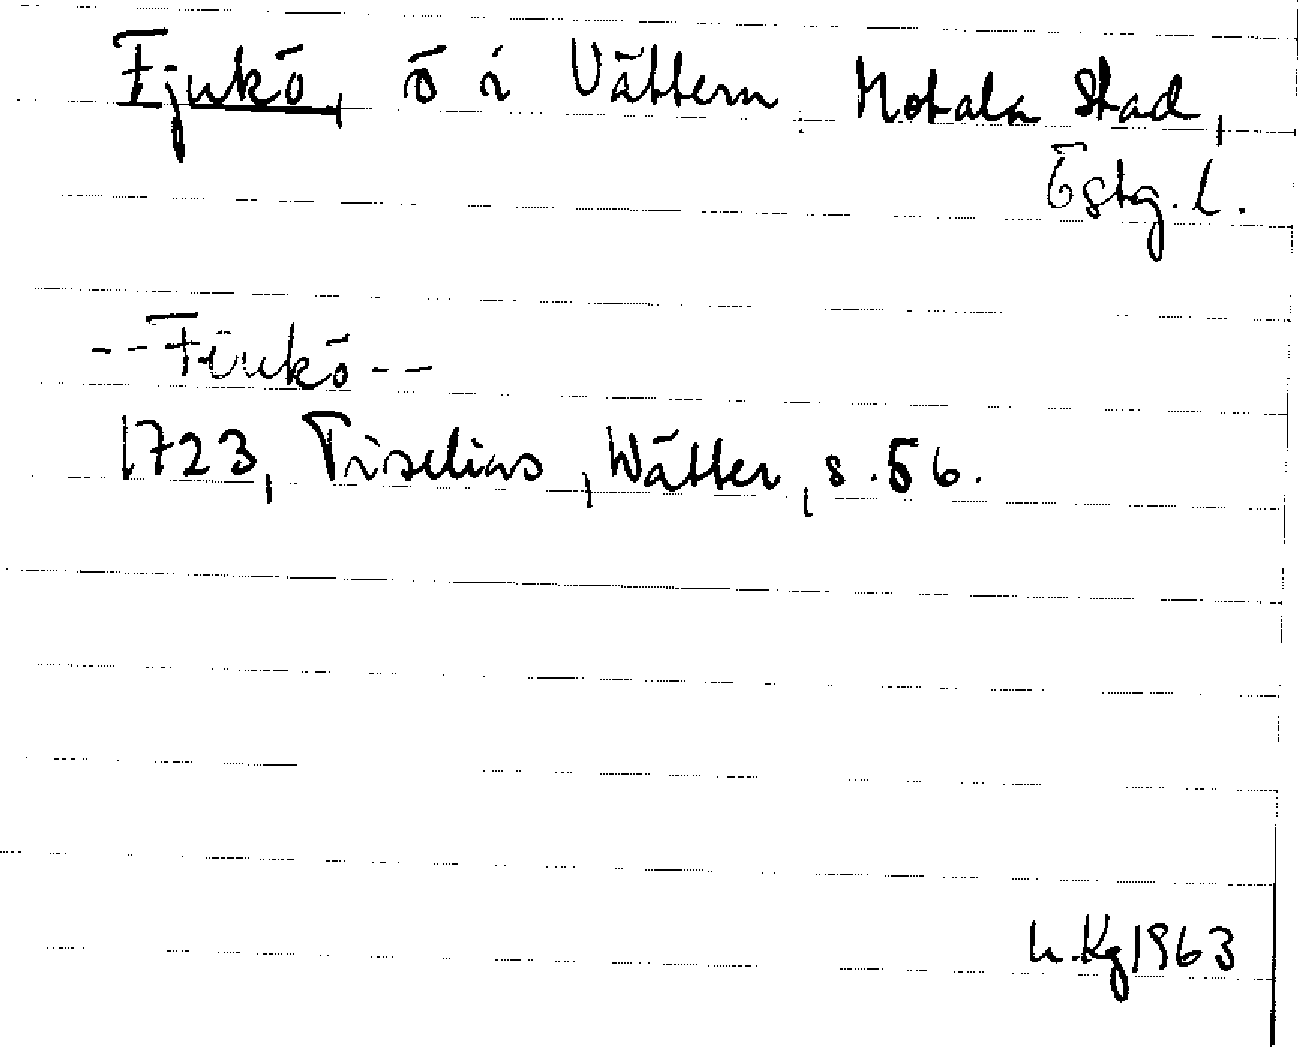 Fjukö, ö i Vättern, Motala stad,
Östg. L.
-- Fiukö --
1723, Tiselius, Wätter, s. 56.
h. Kg 1963